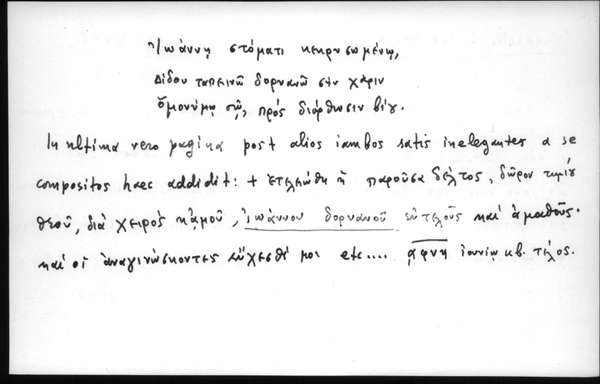 Ἰωάννη στόματι κεχρυσωμένω,
Δίδου ταπεινῶ δορυανῶ σὴν χάριν
Ὁμονύμω σῶ, πρός διόρθωσιν βίου.
In ultima vero pagina post alios iambos satis inelegantes a se
compositos haec addidit: + ἐτελειώθη ἡ παροῦσα δέλτος, δῶρον τιμίου
θεοῦ, διὰ χειρός κἀμοῦ, Ἰωάννου δορυανοῦ εὐτελοῦς καί ἀμαθοῦς.
καί οἱ ἀναγινώσκοντες εὔχεσθέ μοι etc.... ͵αφνη ἰουνίω κβ. τέλος.